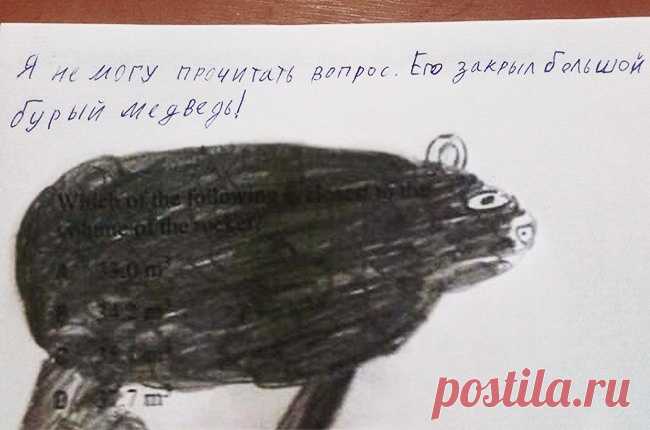 Я не могу прочитать вопрос. Его закрыл большой
бурый медведь!
Which of the following is closest to the
volume of the rocket?
A 33.0 m³
B 34.2 m³
C
D 37.7 m³
postila.ru